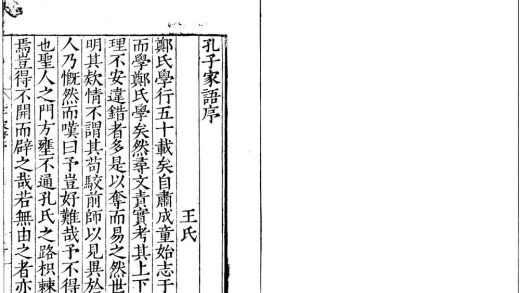 孔子家語序
王氏
鄭氏學行五十載矣自肅成童始志于
而學鄭氏學矣然尋文責實考其上下
理不安違錯者多是以奪而易之然世
明其款情不謂其茍駮前師以見異於
人乃慨然而嘆曰予豈好難哉予不得
也聖人之門方壅不通孔氏之路枳棘
焉豈得不開而辟之哉若無由之者亦